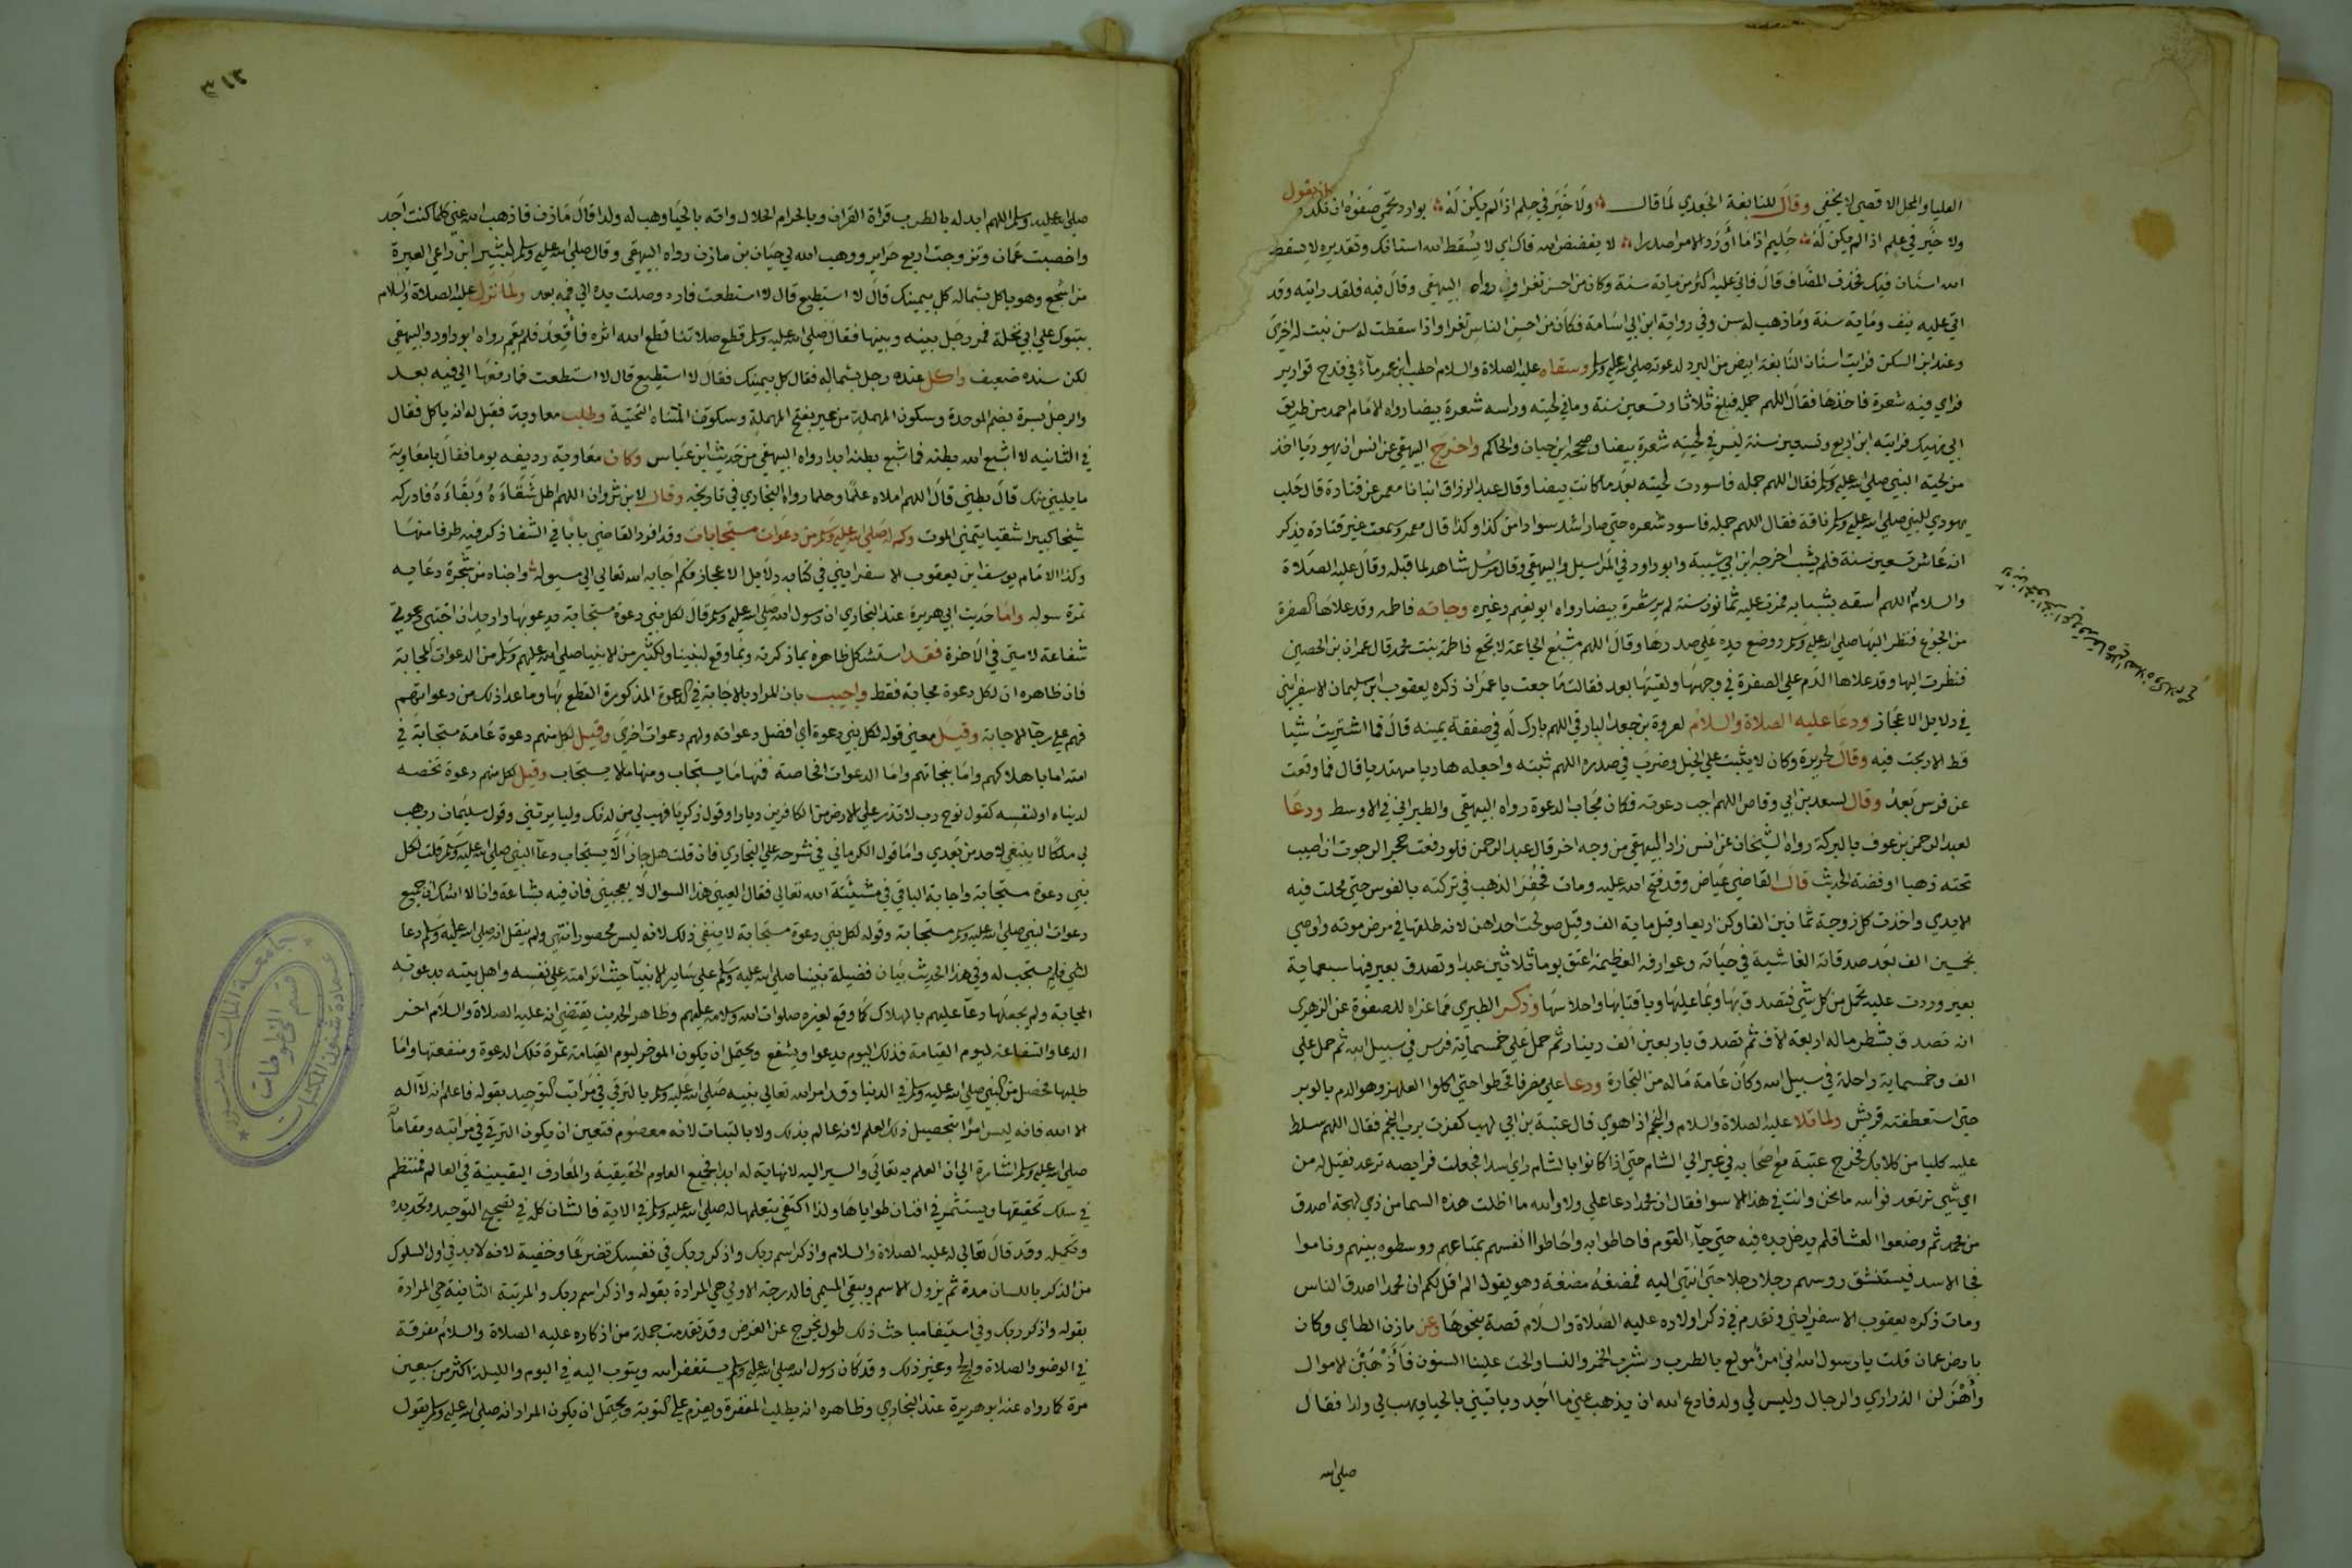 العليا والمحل الاقصى لا يخفى وقال للنابغة الجعدي لما قال ولا خير في حلم اذا لم يكن له بوادر تحمي صفوه ان تكدر
ولا خير في علم اذا لم يكن له حليم اذا ما أورد الامر اصدرا لا يفضض الله فاك اي لا يسقط الله اسنانك وتقديره لا يسقط
الله اسنان فيك فحذف المضاف قال فاتى عليه اكثر من ماية سنة وكان من احسن الناس ثغرا رواه البيهقي وقال فيه فلقد رايته وقد
اتى عليه نيف وماية سنة وما ذهب له سن وفي رواية ابن ابي اسامة فكان من احسن الناس ثغرا واذا سقطت له سن نبت له اخرى
وعند ابن السكن فرايت اسنان النابغة ابيض من البرد لدعوته صلى الله عليه وسلم وسقاه عليه الصلاة والسلام اخطب ماء في قدح قوارير
فراي فيه شعرة فاخذها فقال اللهم جمله فبلغ ثلاثا وتسعين سنة وما في لحيته وراسه شعرة بيضا رواه الامام احمد من طريق
ابي نهيك فرايته ابن اربع وتسعين سنة ليس في لحيته شعرة بيضا وصححه ابن حبان والحاكم واخرج البيهقي عن انس ان يهوديا اخذ
من لحية النبي صلى الله عليه وسلم فقال اللهم جمله فاسودت لحيته بعد ما كانت بيضا وقال عبد الرزاق انبانا معمر عن قتادة قال حلب
يهودي للنبي صلى الله عليه وسلم ناقة فقال اللهم جمله فاسود شعره حتى صار اشد سوادا من كذا وكذا قال معمر وسمعت غير قتادة يذكر
انه عاش تسعين سنة فلم يشب اخرجه ابن ابي شيبة وابو داود في المراسيل والبيهقي وقال مرسل شاهد لما قبله وقال عليه الصلاة
والسلام اللهم امتعه بشبابه فمرت عليه ثمانون سنة لم ير شعرة بيضا رواه ابو نعيم وغيره وجاته فاطمة وقد علاها الصفرة
من الجوع فنظر اليها صلى الله عليه وسلم ووضع يده على صدرها وقال اللهم مشبع الجاعة لا تجع فاطمة بنت محمد قال عمران بن الحصين
فنظرت اليها وقد علاها الدم على الصفرة في وجهها ولقيتها بعد فقالت ما جعت يا عمران ذكره يعقوب ابن سليمان الاسفرايني
في دلايل الاعجاز ودعا عليه الصلاة والسلام لعروة بن جعد البارقي اللهم بارك له في صفقة يمينه قال فما اشتريت شيا
قط الا ربحت فيه وقال لجرير وكان لا يثبت على الخيل وضرب في صدره اللهم ثبته واجعله هاديا مهديا قال فما وقعت
عن فرس بعد وقال لسعد بن ابي وقاص اللهم اجب دعوته فكان مجاب الدعوة رواه البيهقي والطبراني في الاوسط ودعا
لعبد الرحمن بن عوف بالبركة رواه الشيخان عن انس زاد البيهقي من وجه اخر قال عبد الرحمن فلو رفعت حجرا لرجوت ان اصيب
تحته ذهبا او فضة الحديث قال القاضي عياض وقد فتح الله عليه ومات فحفر الذهب في تركته بالفوس حتى مجلت فيه
الايدي واخذت كل زوجة ثمانين الفا وكن اربعا وقيل ماية الف وقيل صولحت احداهن لانه طلقها في مرض موته واوصى
بخمسين الف بعد صدقاته الفاشية في حياته وعوارفه العظيمة اعتق يوما ثلاثين عبدا وتصدق بعير فيها سبعماية
بعير وردت عليه تحمل من كل شي فتصدق بها وبما عليها وباقتابها واحلاسها وذكر الطبري مما عزاه للصفوة عن الزهري
انه تصدق بشطر ماله اربعة الاف ثم تصدق باربعين الف دينار ثم حمل على خمسماية فرس في سبيل الله ثم حمل على
الف وخمسماية راحلة في سبيل الله وكان عامة ماله من التجارة ودعا على مضر فاقحطوا حتى اكلوا العلهز وهو الدم بالوبر
حتى استعطفته قريش ولما تلا عليه الصلاة والسلام والنجم اذا هوى قال عتبة بن ابي لهب كفرت برب النجم فقال اللهم سلط
عليه كلبا من كلابك فخرج عتبة مع اصحابه في عير الى الشام حتى اذا كانوا بالشام راى اسدا فجعلت فرايصه ترعد فقيل له من
اي شي ترتعد فوالله ما نحن وانت في هذا الا سوا فقال ان محمدا دعا علي ولا والله ما اظلت هذه السما من ذي لهجة اصدق
من محمد ثم وضعوا العشا فلم يدخل يده فيه حتى جاء القوم فاحاطوا به واحاطوا انفسهم بمتاعهم ووسطوه بينهم وناموا
فجا الاسد فيستنشق روسهم رجلا رجلا حتى انتهى اليه فمضغه مضغة وهو يقول الم اقل لكم ان محمدا اصدق الناس
ومات ذكره يعقوب الاسفرايني وتقدم في ذكر اولاده عليه الصلاة والسلام قصة بنحوها وعن مازن الطاي وكان
بارض عمان قلت يا رسول الله اني امرؤ مولع بالطرب وشرب الخمر والنسا والحت علينا السنون فأذهبن الاموال
وأهزلن الذراري والرجال وليس لي ولد فادع الله ان يذهب عني ما اجد وياتيني بالحيا ويهب لي ولدا فقال
صلى الله
٣١٢
صلى الله عليه وسلم اللهم ابدله بالطرب قراة القران وبالحرام الحلال واته بالحيا وهب له ولدا قال مازن فاذهب الله عني كلما كنت اجد
واخصبت عمان وتزوجت اربع حراير ووهب الله لي حيان بن مازن رواه البيهقي وقال صلى الله عليه وسلم لبشير ابن راعي العير
من اشجع وهو ياكل بشماله كل بيمينك قال لا استطيع قال لا استطعت فما وصلت يده الى فيه بعد ولما نزل عليه الصلاة والسلام
بتبوك على ابي نخلة فمر رجل بينه وبينها فقال صلى الله عليه وسلم قطع صلاتنا قطع الله اثره فأقعد فلم يقم رواه ابو داود والبيهقي
لكن سنده ضعيف واكل عنده رجل بشماله فقال كل بيمينك فقال لا استطيع قال لا استطعت فما رفعها الى فيه بعد
والرجل بسرة بضم الموحدة وسكون المهملة من عير بفتح المهملة وسكون المثناه التحتية وطلب معاوية فقيل له انه ياكل فقال
في الثانيه لا اشبع الله بطنه فما شبع بطنه ابدا رواه البيهقي من حديث ابن عباس وكان معاوية رديفه يوما فقال يا معاوية
ما يليني منك قال بطني قال اللهم املاه علما وحلما رواه البخاري في تاريخه وقال لابن ثروان اللهم اطل شقاءه وبقاءه فادركه
شيخا كبيرا شقيا يتمنى الموت وكم له صلى الله عليه وسلم من دعوات مستجابات وقد افرد القاضي بابا في الشفا ذكر فيه طرفا منها
وكذا الامام يوسف ابن يعقوب الاسفرايني في كتابه دلايل الاعجاز فكم اجابه الله تعالى الى سوله واجناه من شجرة دعايه
ثمرة سوله واما حديث ابي هريرة عند البخاري ان رسول الله صلى الله عليه وسلم قال لكل نبي دعوة مستجابة يدعو بها واريد ان اختبي دعوتي
شفاعة لامتي في الاخرة فقد استشكل ظاهره بما ذكرته وبما وقع لنبينا ولكثير من الانبيا صلى الله عليهم وسلم من الدعوات المجابة
فان ظاهره ان لكل دعوة مجابة فقط واجيب بان المراد بالاجابة في الدعوة المذكورة القطع بها وما عدا ذلك من دعواتهم
فهم على رجا الاجابة وقيل معنى قوله لكل نبي دعوة اي افضل دعواته ولهم دعوات اخرى وقيل لكل منهم دعوة عامة مستجابة في
امته اما باهلاكهم واما بنجاتهم واما الدعوات الخاصة فمنها ما يستجاب ومنها ما لا يستجاب وقيل لكل منهم دعوة تخصه
لدنياه او لنفسه كقول نوح رب لا تذر على الارض من الكافرين ديارا وقول زكريا فهب لي من لدنك وليا يرثني وقول سليمان رب هب
لي ملكا لا ينبغي لاحد من بعدي واما قول الكرماني في شرحه على البخاري فان قلت هل جاز الا يستجاب دعا النبي صلى الله عليه وسلم قلت لكل
نبي دعوة مستجابة واجابة الباقي في مشيئة الله تعالى فقال العيني هذا السوال لا يعجبني فان فيه بشاعة وانا لا اشك ان جميع
دعوات النبي صلى الله عليه وسلم مستجابة وقوله لكل نبي دعوة مستجابة لا ينفي ذلك لانه ليس محصورا انتهى ولم ينقل انه صلى الله عليه وسلم دعا
لشي فلم يستجب له وفي هذا الحديث بيان فضيلة نبينا صلى الله عليه وسلم على ساير الانبيا حيث اثر امته على نفسه واهل بيته بدعوته
المجابة ولم يجعلها دعا عليهم بالهلاك كما وقع لغيره صلوات الله وسلامه عليهم وظاهر الحديث يقتضي انه عليه الصلاة والسلام اخر
الدعا والشفاعة ليوم القيامة فذلك اليوم يدعوا ويشفع ويحتمل ان يكون الموخر ليوم القيامة ثمرة تلك الدعوة ومنفعتها واما
طلبها فحصل من النبي صلى الله عليه وسلم في الدنيا وقد امر الله تعالى نبيه صلى الله عليه وسلم بالترقي في مراتب التوحيد بقوله فاعلم انه لا اله
الا الله فانه ليس امرا بتحصيل ذلك العلم لانه عالم بذلك ولا بالثبات لانه معصوم فتعين ان يكون الترقي في مراتبه ومقاماته
صلى الله عليه وسلم اشارة الى ان العلم به تعالى والسير اليه لا نهاية له ابدا فجميع العلوم الحقيقية والمعارف اليقينية في العالم منتظم
في سلك تحقيقها ويستثمر في افنان طواياها ولذا اكتفى بتعلمها له صلى الله عليه وسلم في الاية فالشان كله في تصحيح التوحيد وتجديده
وتكميله وقد قال تعالى له عليه الصلاة والسلام واذكر اسم ربك واذكر ربك في نفسك تضرعا وخفية لانه لا بد في اول السلوك
من الذكر باللسان مدة ثم يزول الاسم ويبقى المسمى فالدرجة الاولى هي المرادة بقوله واذكر اسم ربك والمرتبة الثانية هي المرادة
بقوله واذكر ربك وفي استيفا مباحث ذلك طول يخرج عن الغرض وقد تقدمت جملة من اذكاره عليه الصلاة والسلام مفرقة
في الوضو والصلاة والحج وغير ذلك وقد كان رسول الله صلى الله عليه وسلم يستغفر الله ويتوب اليه في اليوم والليلة اكثر من سبعين
مرة كما رواه عنه ابو هريرة عند البخاري وظاهره انه يطلب المغفرة ويعزم على التوبة ويحتمل ان يكون المراد انه صلى الله عليه وسلم يقول
قسم المخطوطات
عمادة شؤون المكتبات